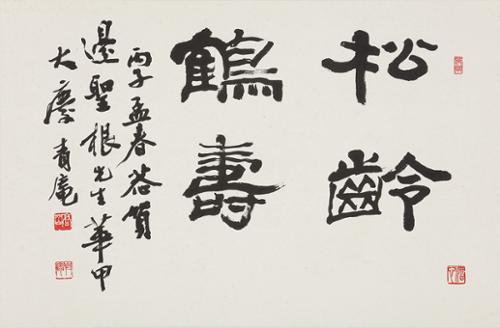 松齡
鶴壽
丙子孟春恭賀
邊聖根先生華甲
大慶 青庵